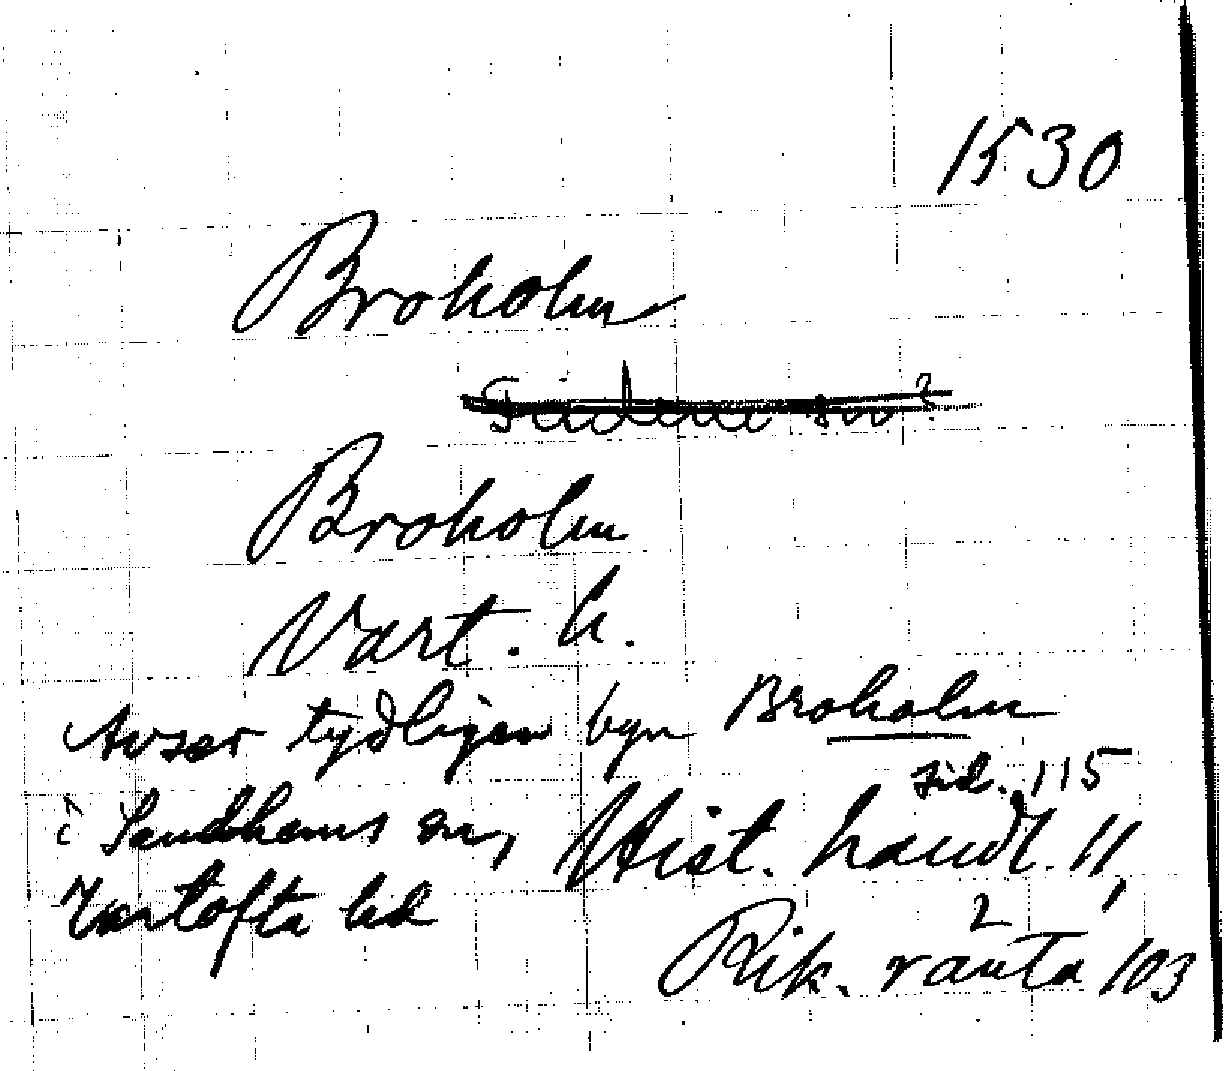 1530
Broholm
Broholm
Vart. h.
Avser tydligen byn Broholm
sid. 115
i Sandhems sn, Hist. handl. 11,
Vartofta hd
2
Rik. ränta 103